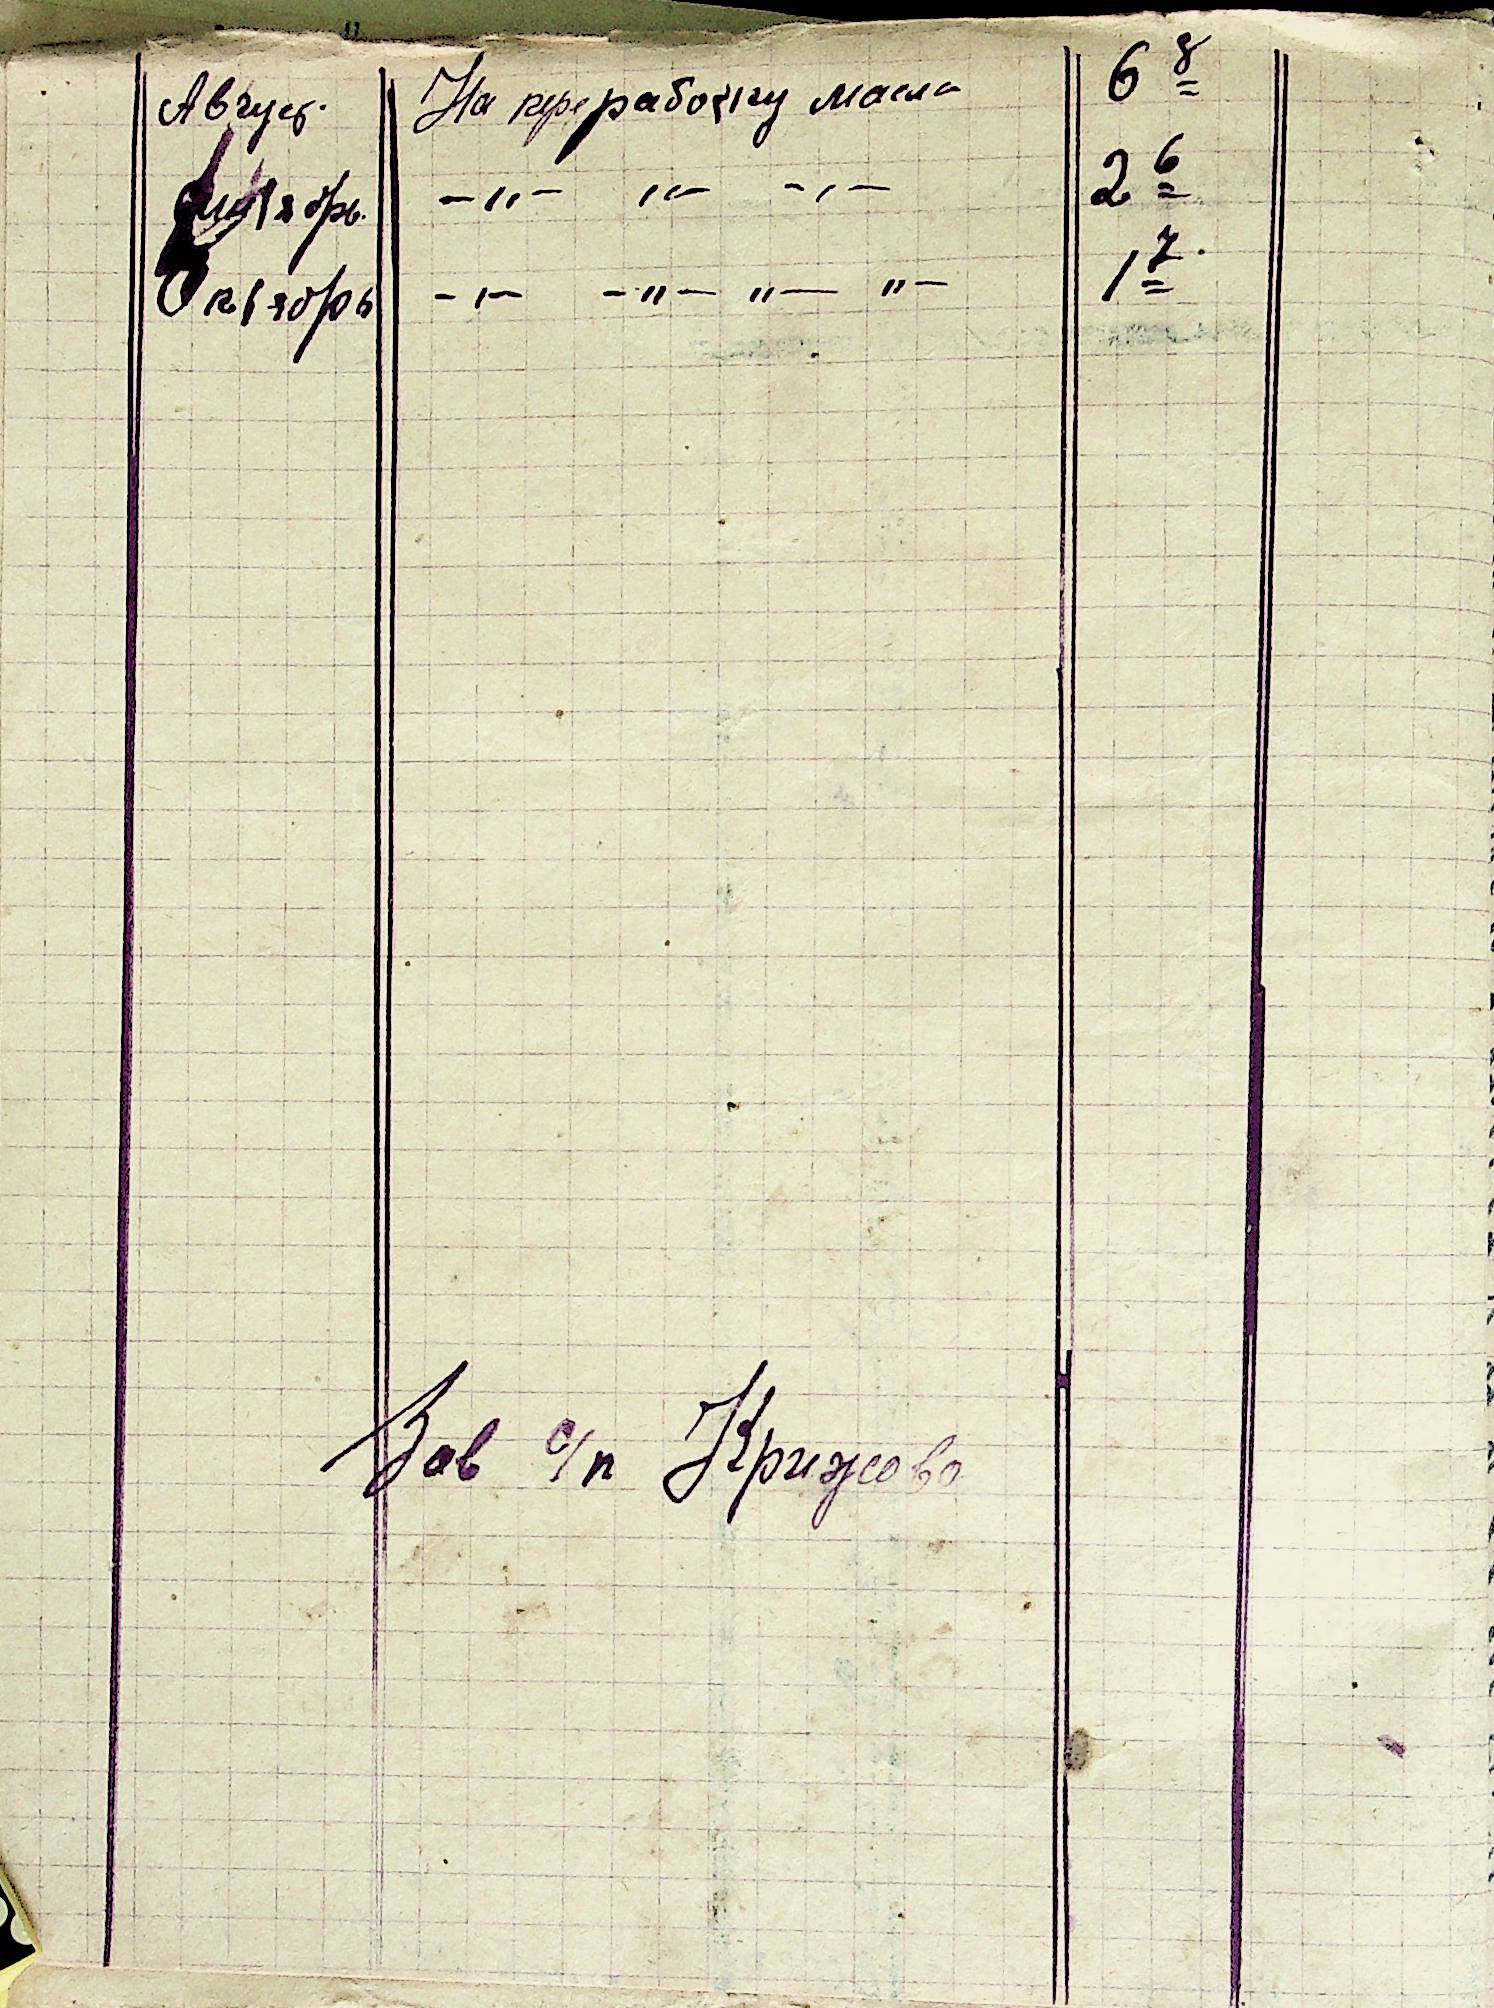 Август. На переработку масла 6 8
Сентябрь. -"- "- -"- 2 6
Октябрь -"- -"- "- "- 1 7.
Зав с/п Крижова